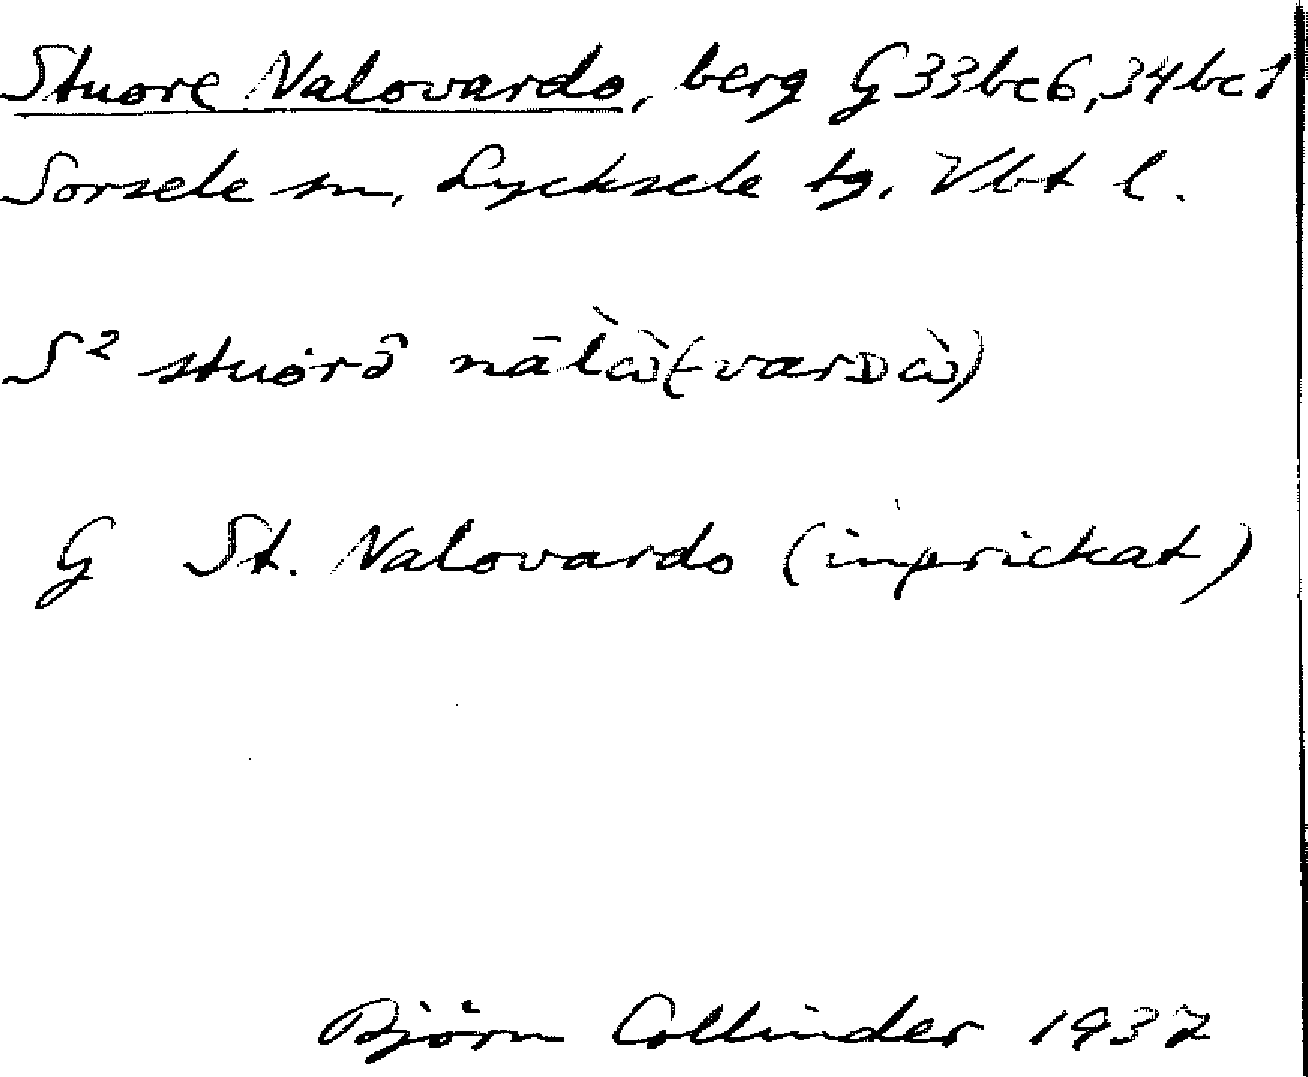 Stuore Nalovardo, berg G33bc6,34bc1
Sorsele sn, Lycksele tg. Vbt l.
S² stuȯrɔ̂ nāl̀ɷ̀(-varᴅɷ̀)
G St. Nalovardo (inprickat)
Björn Collinder 1937